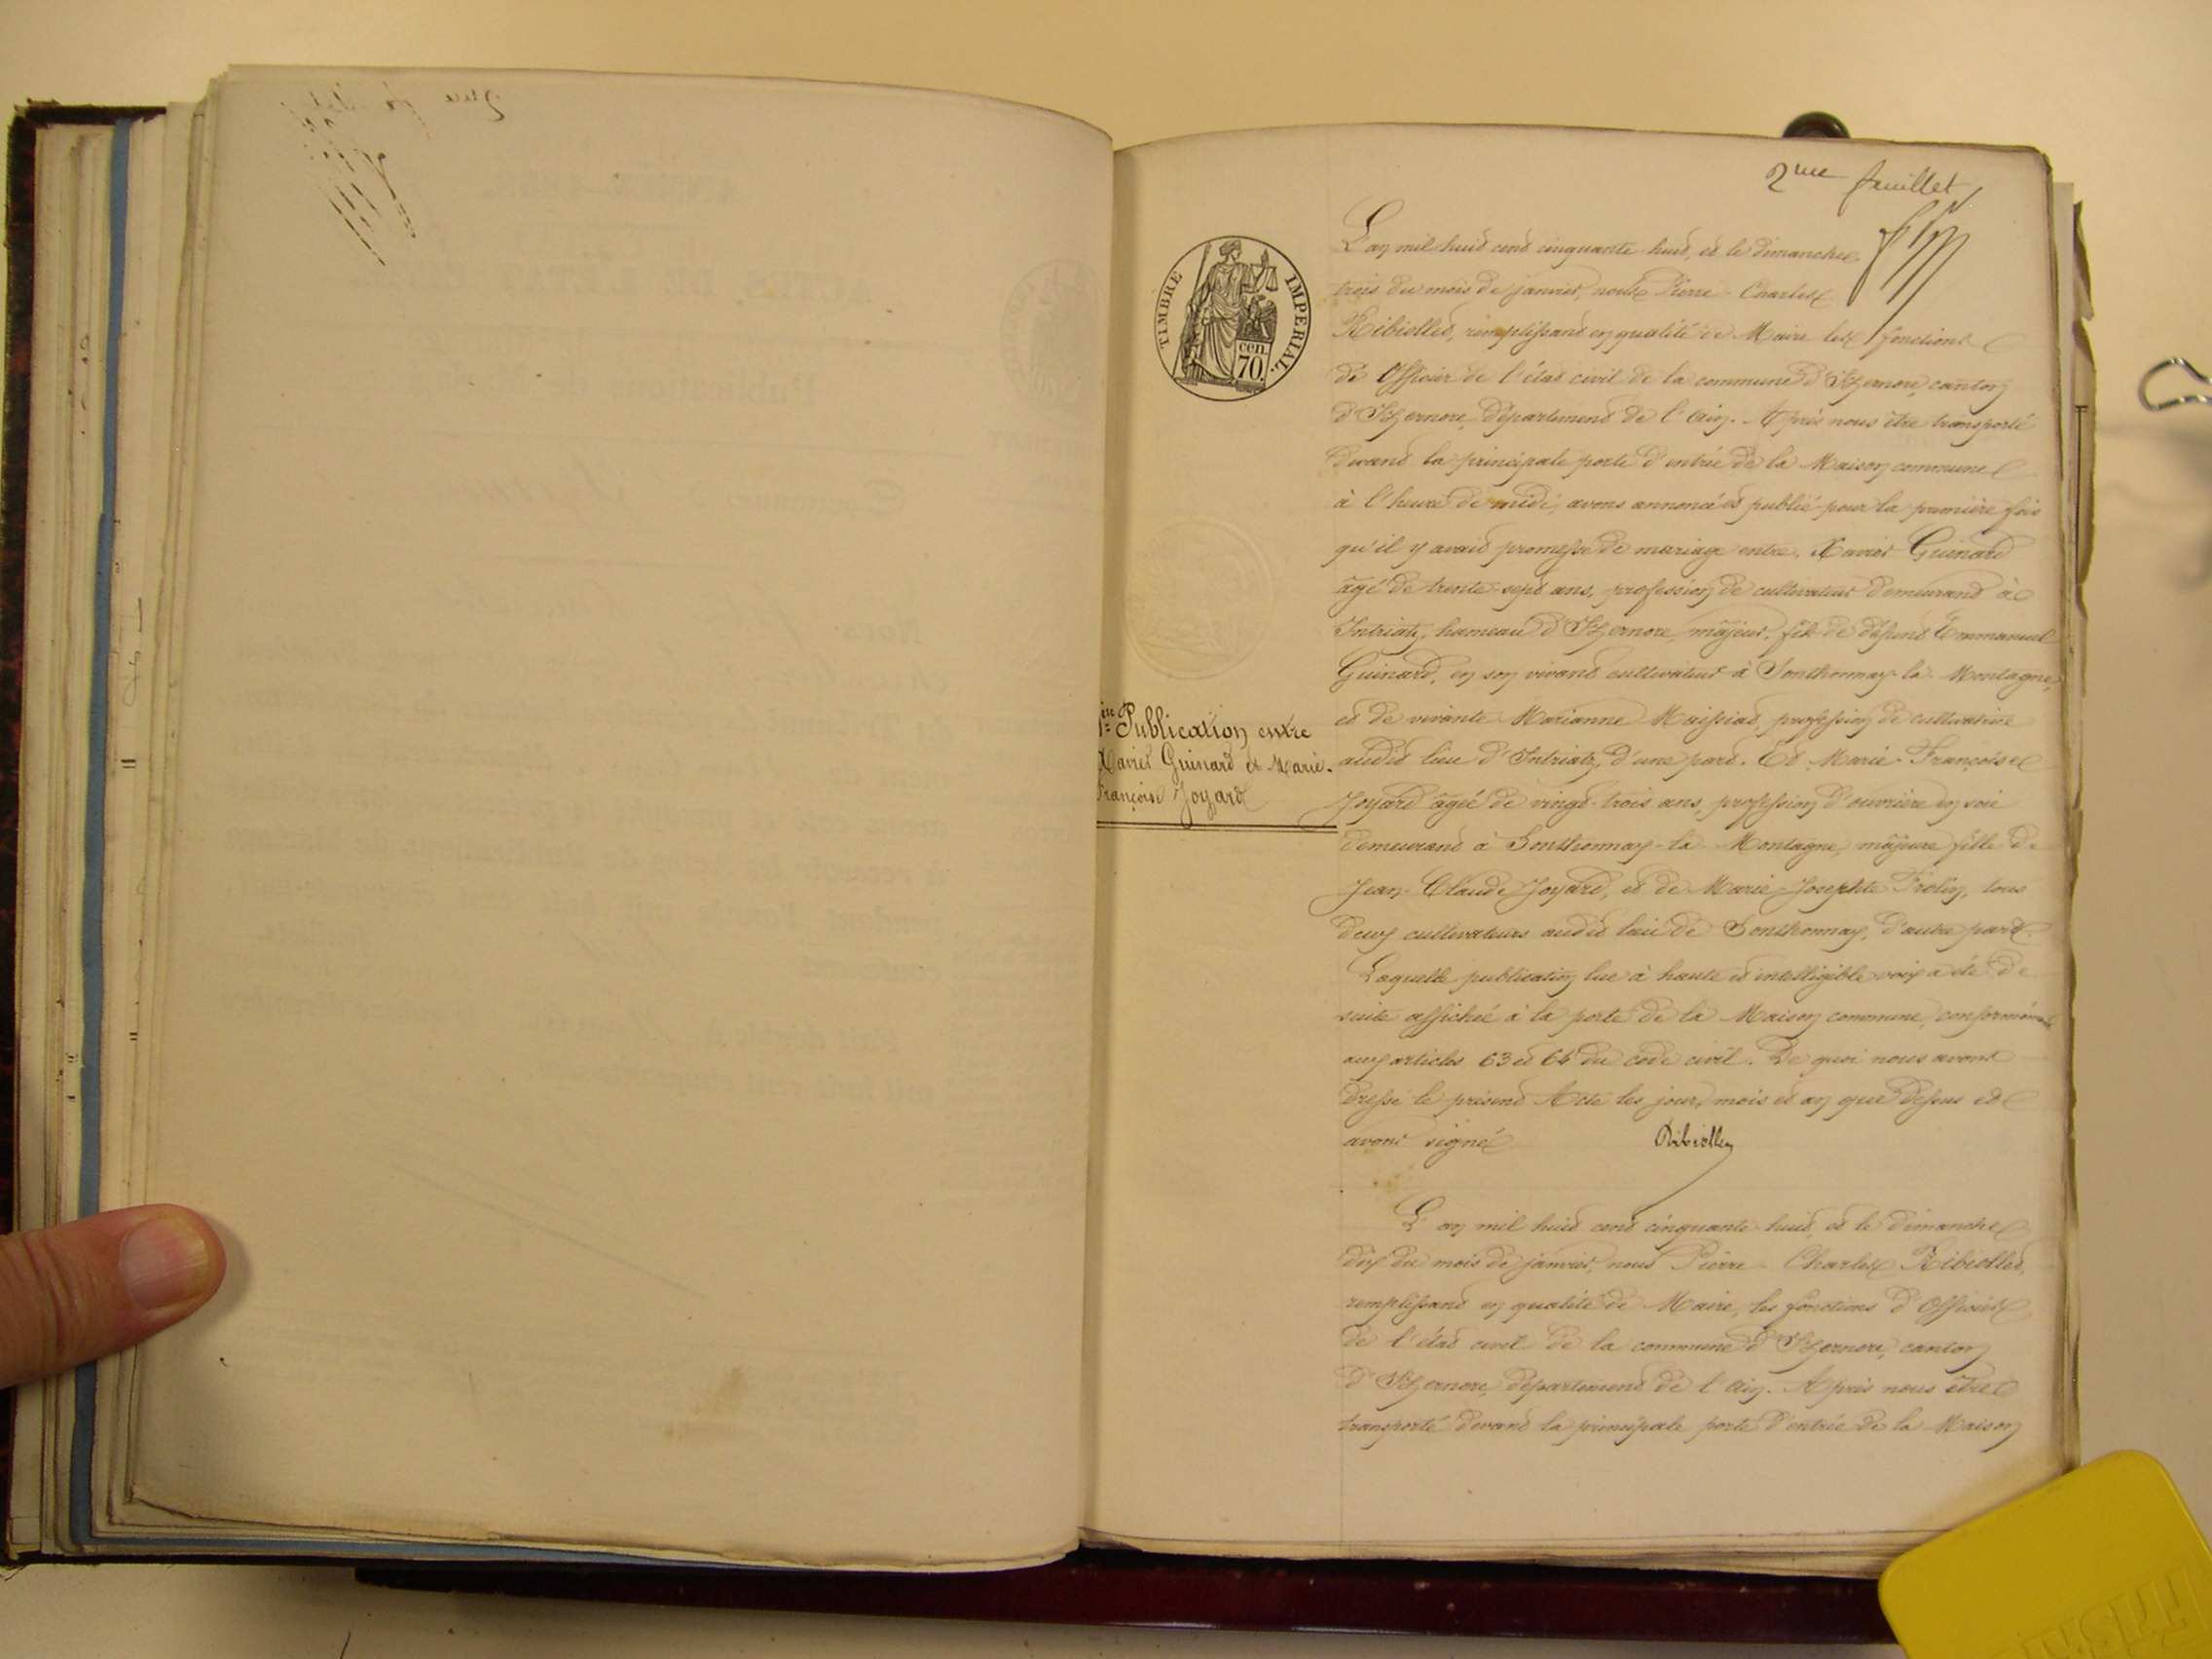 2me feuillet
TIMBRE IMPERIAL.
cen.
70.
L'an mil huit cent cinquante huit, et le dimanche
trois du mois de janvier, nous Pierre Charles
Ribiollet, remplissant en qualité de Maire les fonctions
de Officier de l'état civil de la commune d'Izernore, canton
d'Izernore, département de l'Ain. Après nous être transporté
devant la principale porte d'entrée de la Maison commune
à l'heure de midi, avons annoncé et publié pour la première fois
qu'il y avait promesse de mariage entre. Xavier Guinard
âgé de trente-sept ans, profession de cultivateur demeurant à
Intriat, hameau d'Izernore, majeur, fils de défunt Emmanuel
Guinard, en son vivant cultivateur à Sonthonnay-la-Montagne,
et de vivante Marianne Maissiat, profession de cultivatrice
audit lieu d'Intriat, d'une part. Et Marie-Françoise
Joyard âgée de vingt-trois ans, profession d'ouvrière en soie
demeurant à Sonthonnay-la-Montagne, majeure fille de
Jean-Claude Joyard, et de Marie-Josephte tous
deux cultivateurs audit lieu de Sonthonnay, d'autre part.
Laquelle publication lue à haute et intelligible voix a été de
suite affichée à la porte de la Maison commune, conformément
aux articles 63 et 64 du code civil. De quoi nous avons
dressé le présent Acte les jour, mois et an que dessus et
avons signé
Ribiollet
1ère Publication entre
Xavier Guinard et Marie-
Françoise Joyard
L'an mil huit cent cinquante-huit, et le dimanche
dix du mois de janvier, nous Pierre Charles Ribiollet,
remplissant en qualité de Maire, les fonctions d'Officier
de l'état civil de la commune d'Izernore, canton
d'Izernore, département de l'Ain. Après nous être
transporté devant la principale porte d'entrée de la Maison